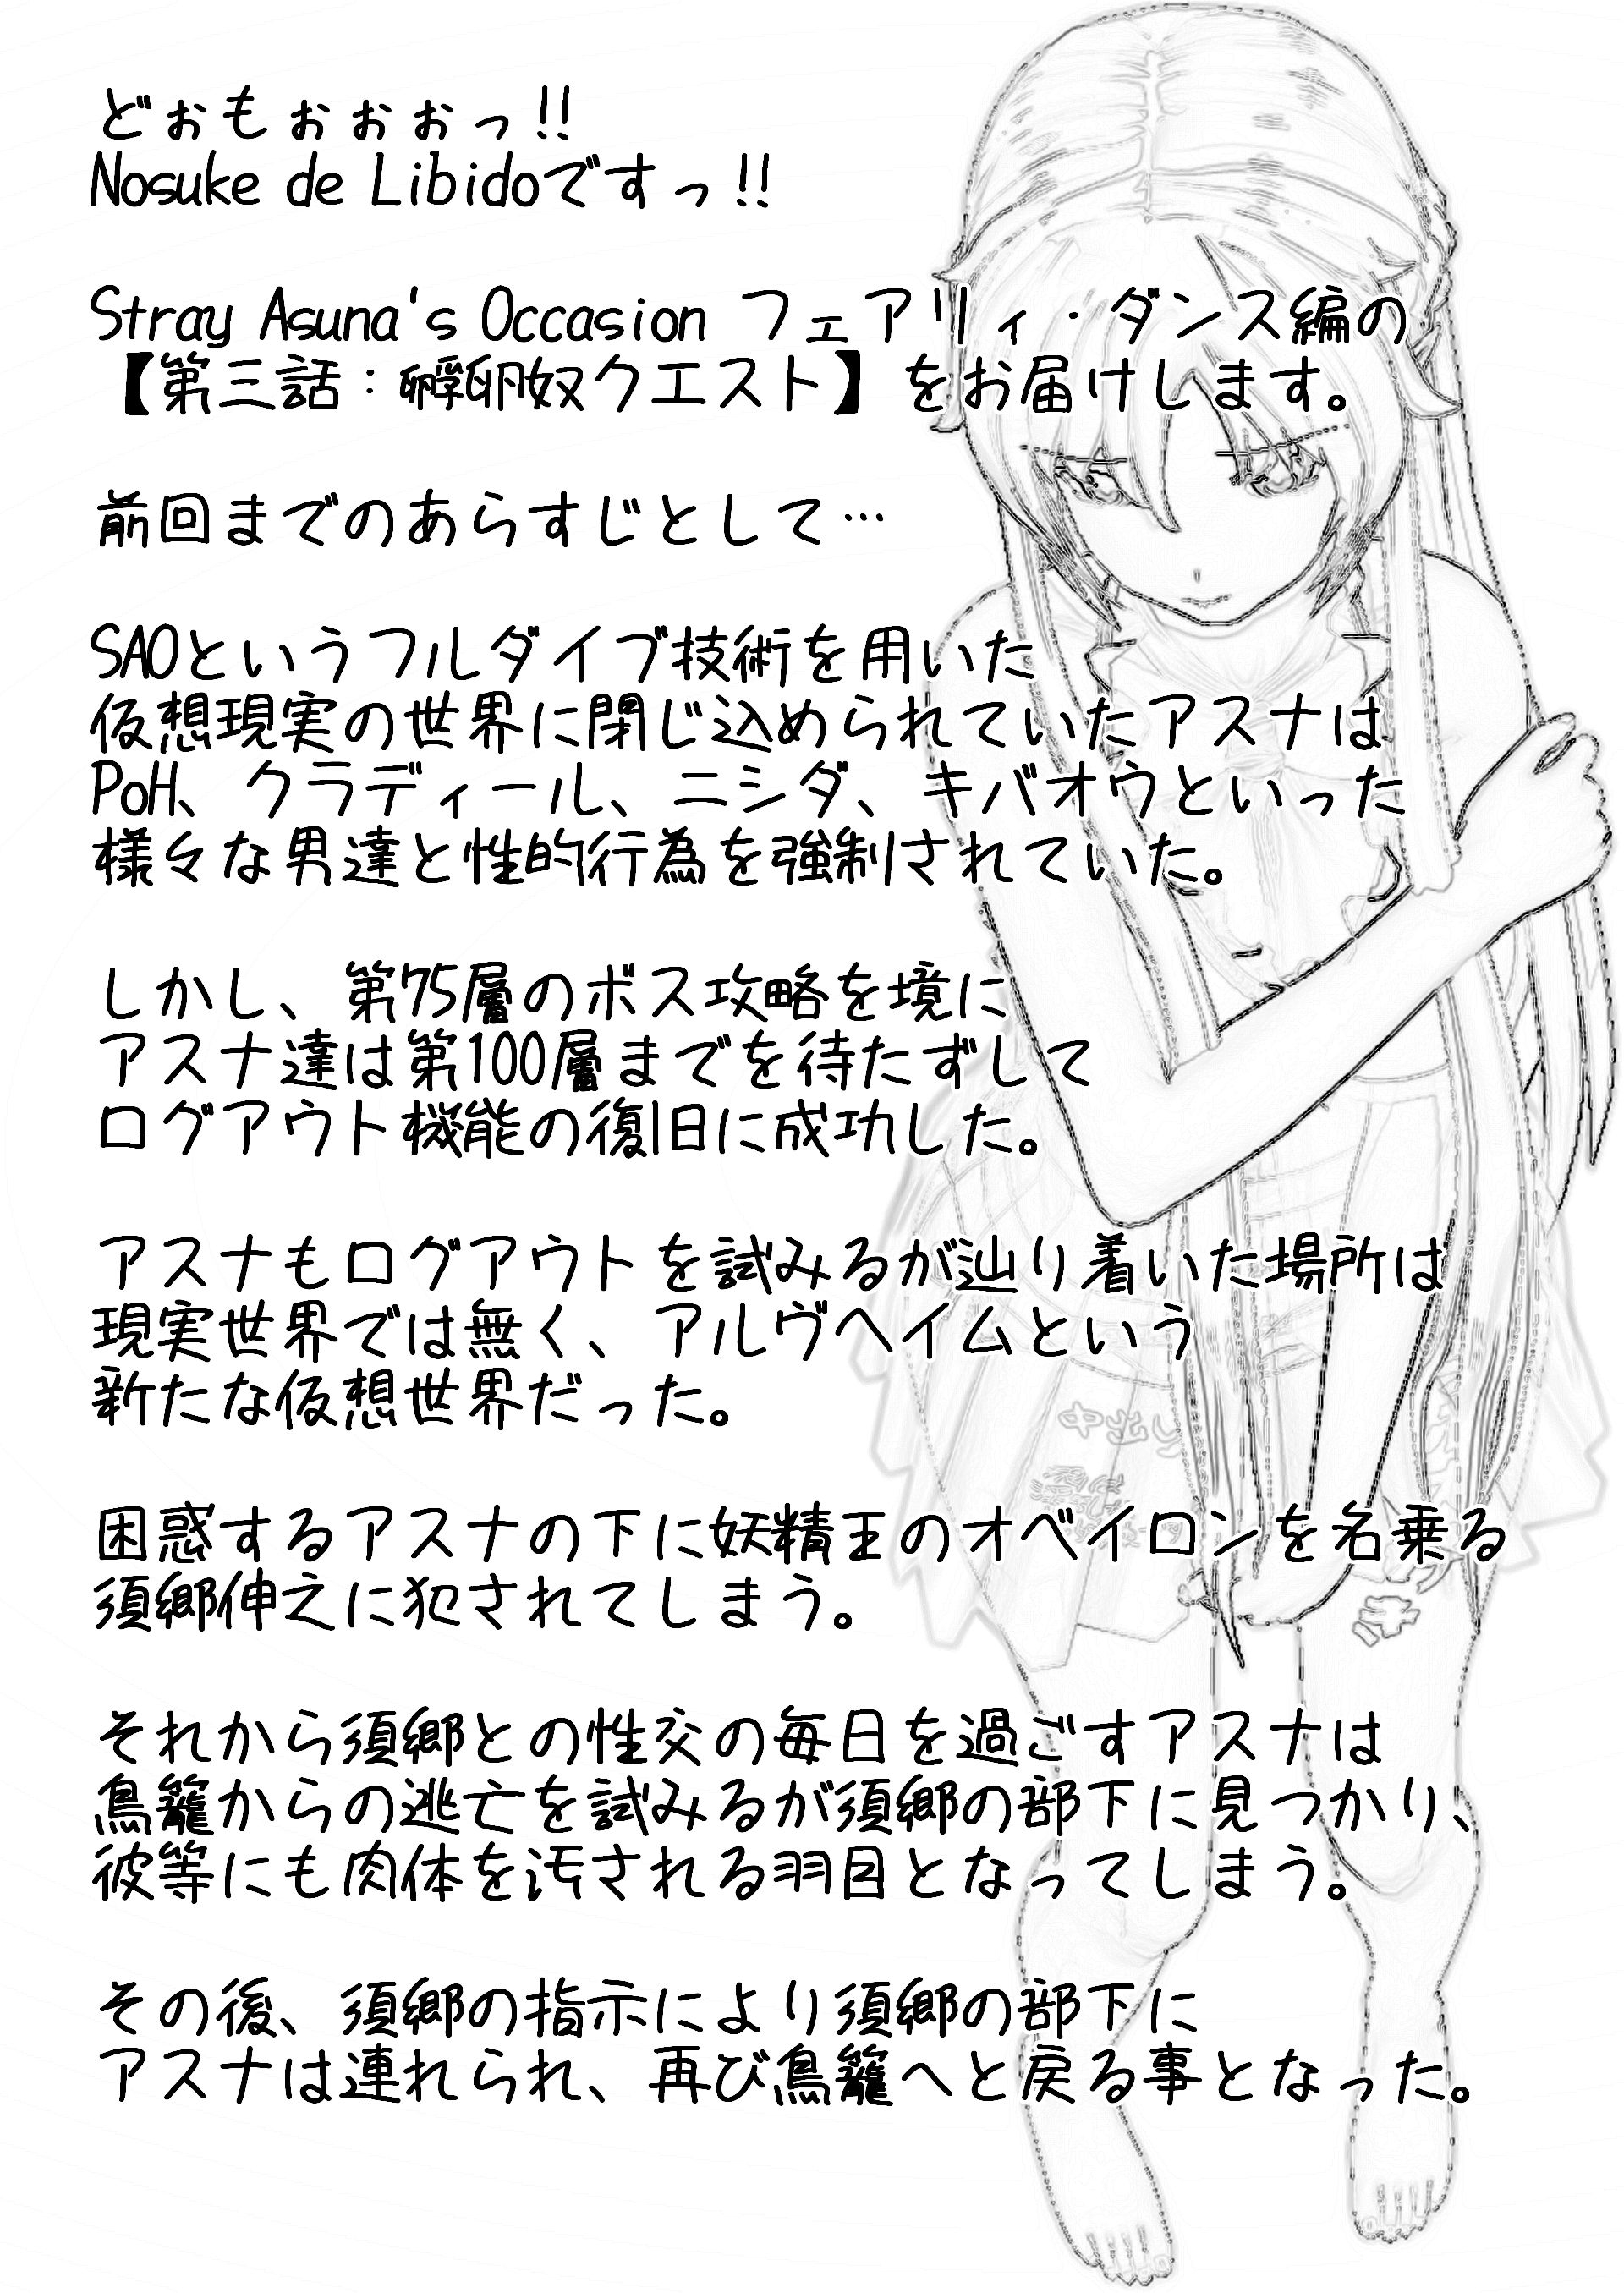 どぉもぉぉぉっ!!
Nosuke de Libidoですっ!!
Stray Asuna's Occasion フェアリィ・ダンス編の
【第三話：孵卵奴クエスト】をお届けします。
前回までのあらすじとして…
SAOというフルダイブ技術を用いた
仮想現実の世界に閉じ込められていたアスナは
PoH、クラディール、ニシダ、キバオウといった
様々な男達と性的行為を強制されていた。
しかし、第75層のボス攻略を境に
アスナ達は第100層までを待たずして
ログアウト機能の復旧に成功した。
アスナもログアウトを試みるが辿り着いた場所は
現実世界では無く、アルヴヘイムという
新たな仮想世界だった。
困惑するアスナの下に妖精王のオベイロンを名乗る
須郷伸之に犯されてしまう。
それから須郷との性交の毎日を過ごすアスナは
鳥籠からの逃亡を試みるが須郷の部下に見つかり、
彼等にも肉体を汚される羽目となってしまう。
その後、須郷の指示により須郷の部下に
アスナは連れられ、再び鳥籠へと戻る事となった。